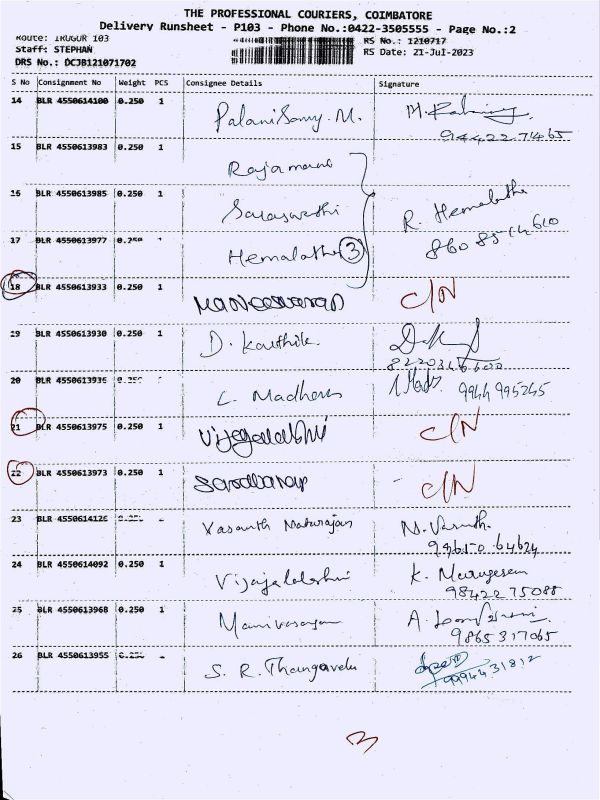 THE PROFESSIONAL COURIERS, COIMBATORE
Delivery Runsheet - P103 - Phone No.:0422-3505555 - Page No.:2
Route: IRUGUR 103
RS No.: 1210717
Staff: STEPHAN
RS Date: 21-Jul-2023
DRS No.: DCJB121071702
S No Consignment No Weight PCS Consignee Details Signature
14 BLR 4550614100 0.250 1 Palanisamy. M. M.
94422 7465
15 BLR 4550613983 1 Rajamani
16 BLR 4550613985 0.250 1 Saraswathi R. Hemalatha
17 BLR 4550613977 0.250 Hemalatha 3
18 BLR 4550613933 0.250 1 Maneeswaran C/N
19 BLR 4550613930 0.250 1 D. Kauthik
20 BLR 4550613936 1 C. Madhavan 9944 995245
21 BLR 4550613975 0.250 1 Vijayalakshmi C/N
22 BLR 4550613973 0.250 1 C/N
23 BLR 4550614126 Vasanth Natarajan N. Vasanth.
98650 64624
24 BLR 4550614092 0.250 1 Vijayalakshmi K. Murugesan
98422 75088
25 BLR 4550613968 0.250 1 Manivasagan A.
9865317065
26 BLR 4550613955 S. R. Thangavelu
9994431812
3